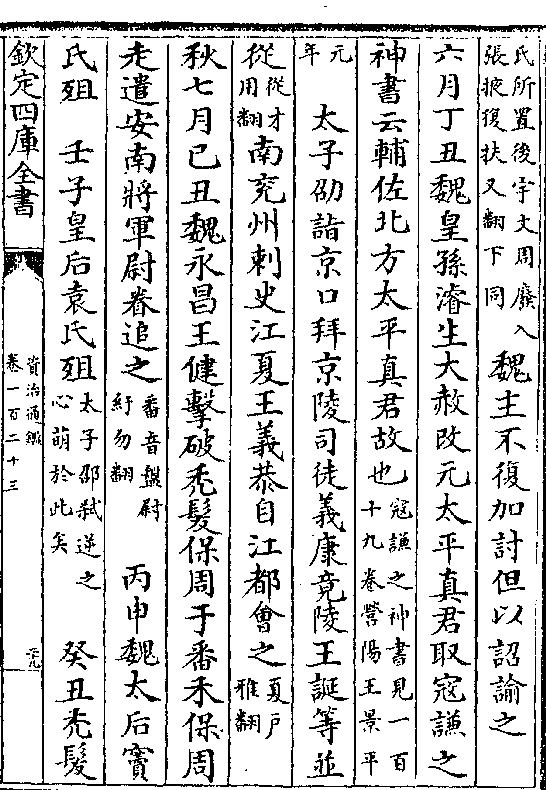 氏所置後宇文周廢入
張掖復扶又翻下同
魏主不復加討但以詔諭之
六月丁丑魏皇孫濬生大赦改元太平真君取寇謙之
神書云輔佐北方太平真君故也
寇謙之神書見一百
十九卷營陽王景平
元
年
太子劭詣京口拜京陵司徒義康竟陵王誕等並
從
從才
用翻
南兖州刺史江夏王義恭自江都會之
夏户
雅翻
秋七月己丑魏永昌王健擊破禿髮保周于番禾保周
走遣安南將軍尉眷追之
番音盤尉
紆勿翻
丙申魏太后竇
氏殂
壬子皇后袁氏殂
太子邵弑逆之
心萌於此矣
癸丑禿髮
欽定四庫全書
資治通鑑
卷一百二十三